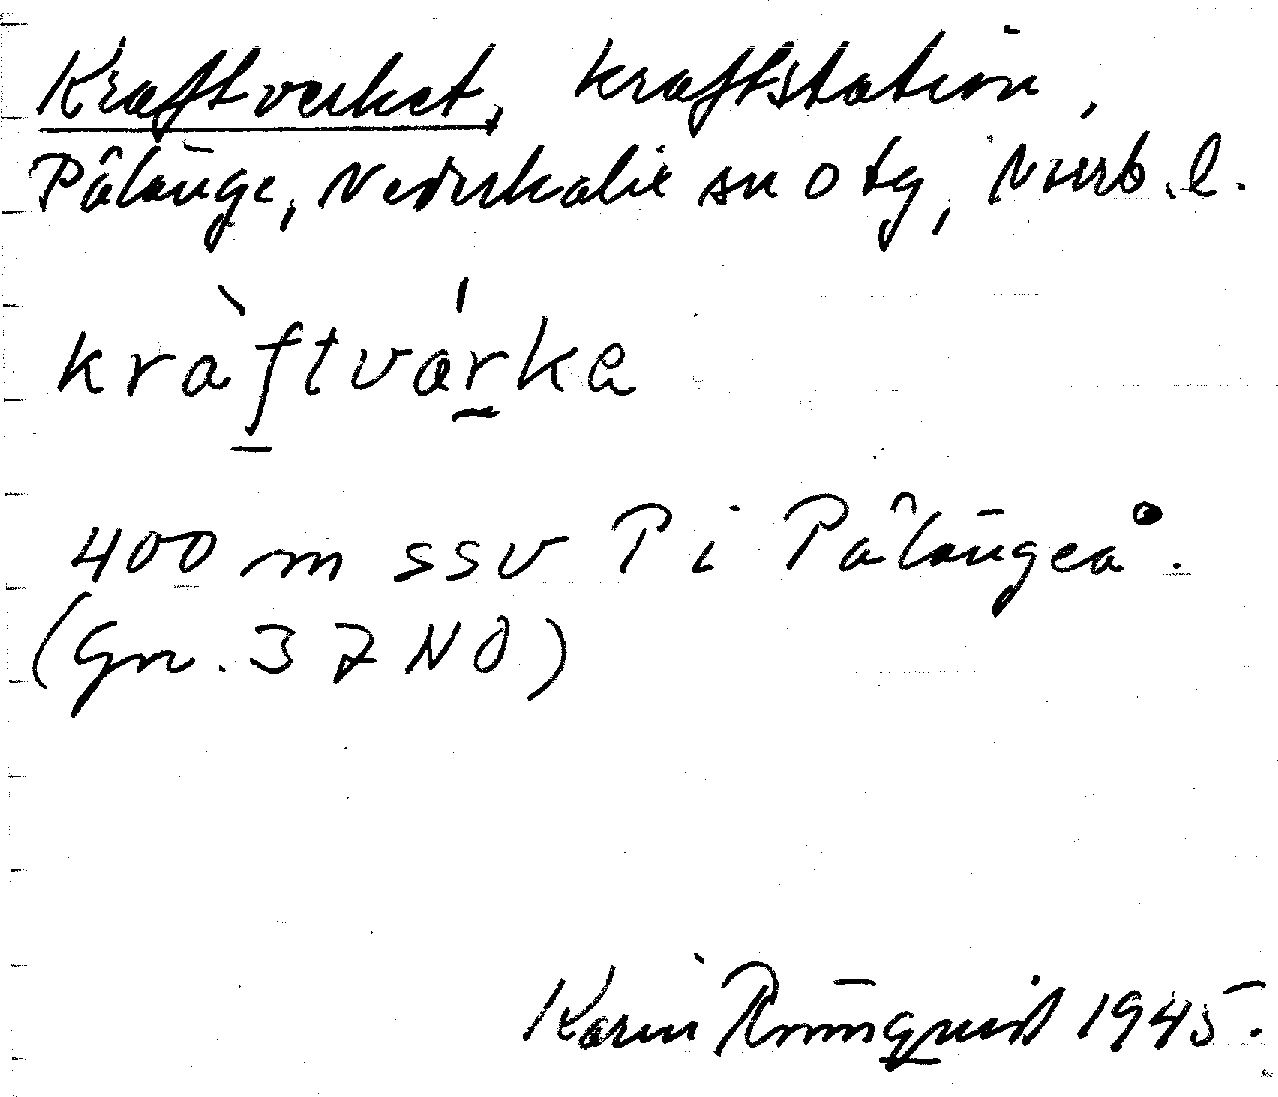 Kraftverket, kraftstation,
Pålänge, Nederkalix sn o tg, Norrb. l.
kràftvárka
400 m ssv P i Pålängeå.
(Gn. 37 NO)
Karin Rönnqvist 1945.